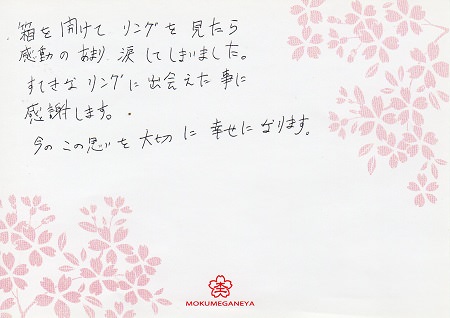 箱を開けて リングを見たら
感動のあまり 涙してしまいました。
すてきな リングに出会えた事に
感謝します。
今の この思いを 大切に 幸せになります。
MOKUMEGANEYA